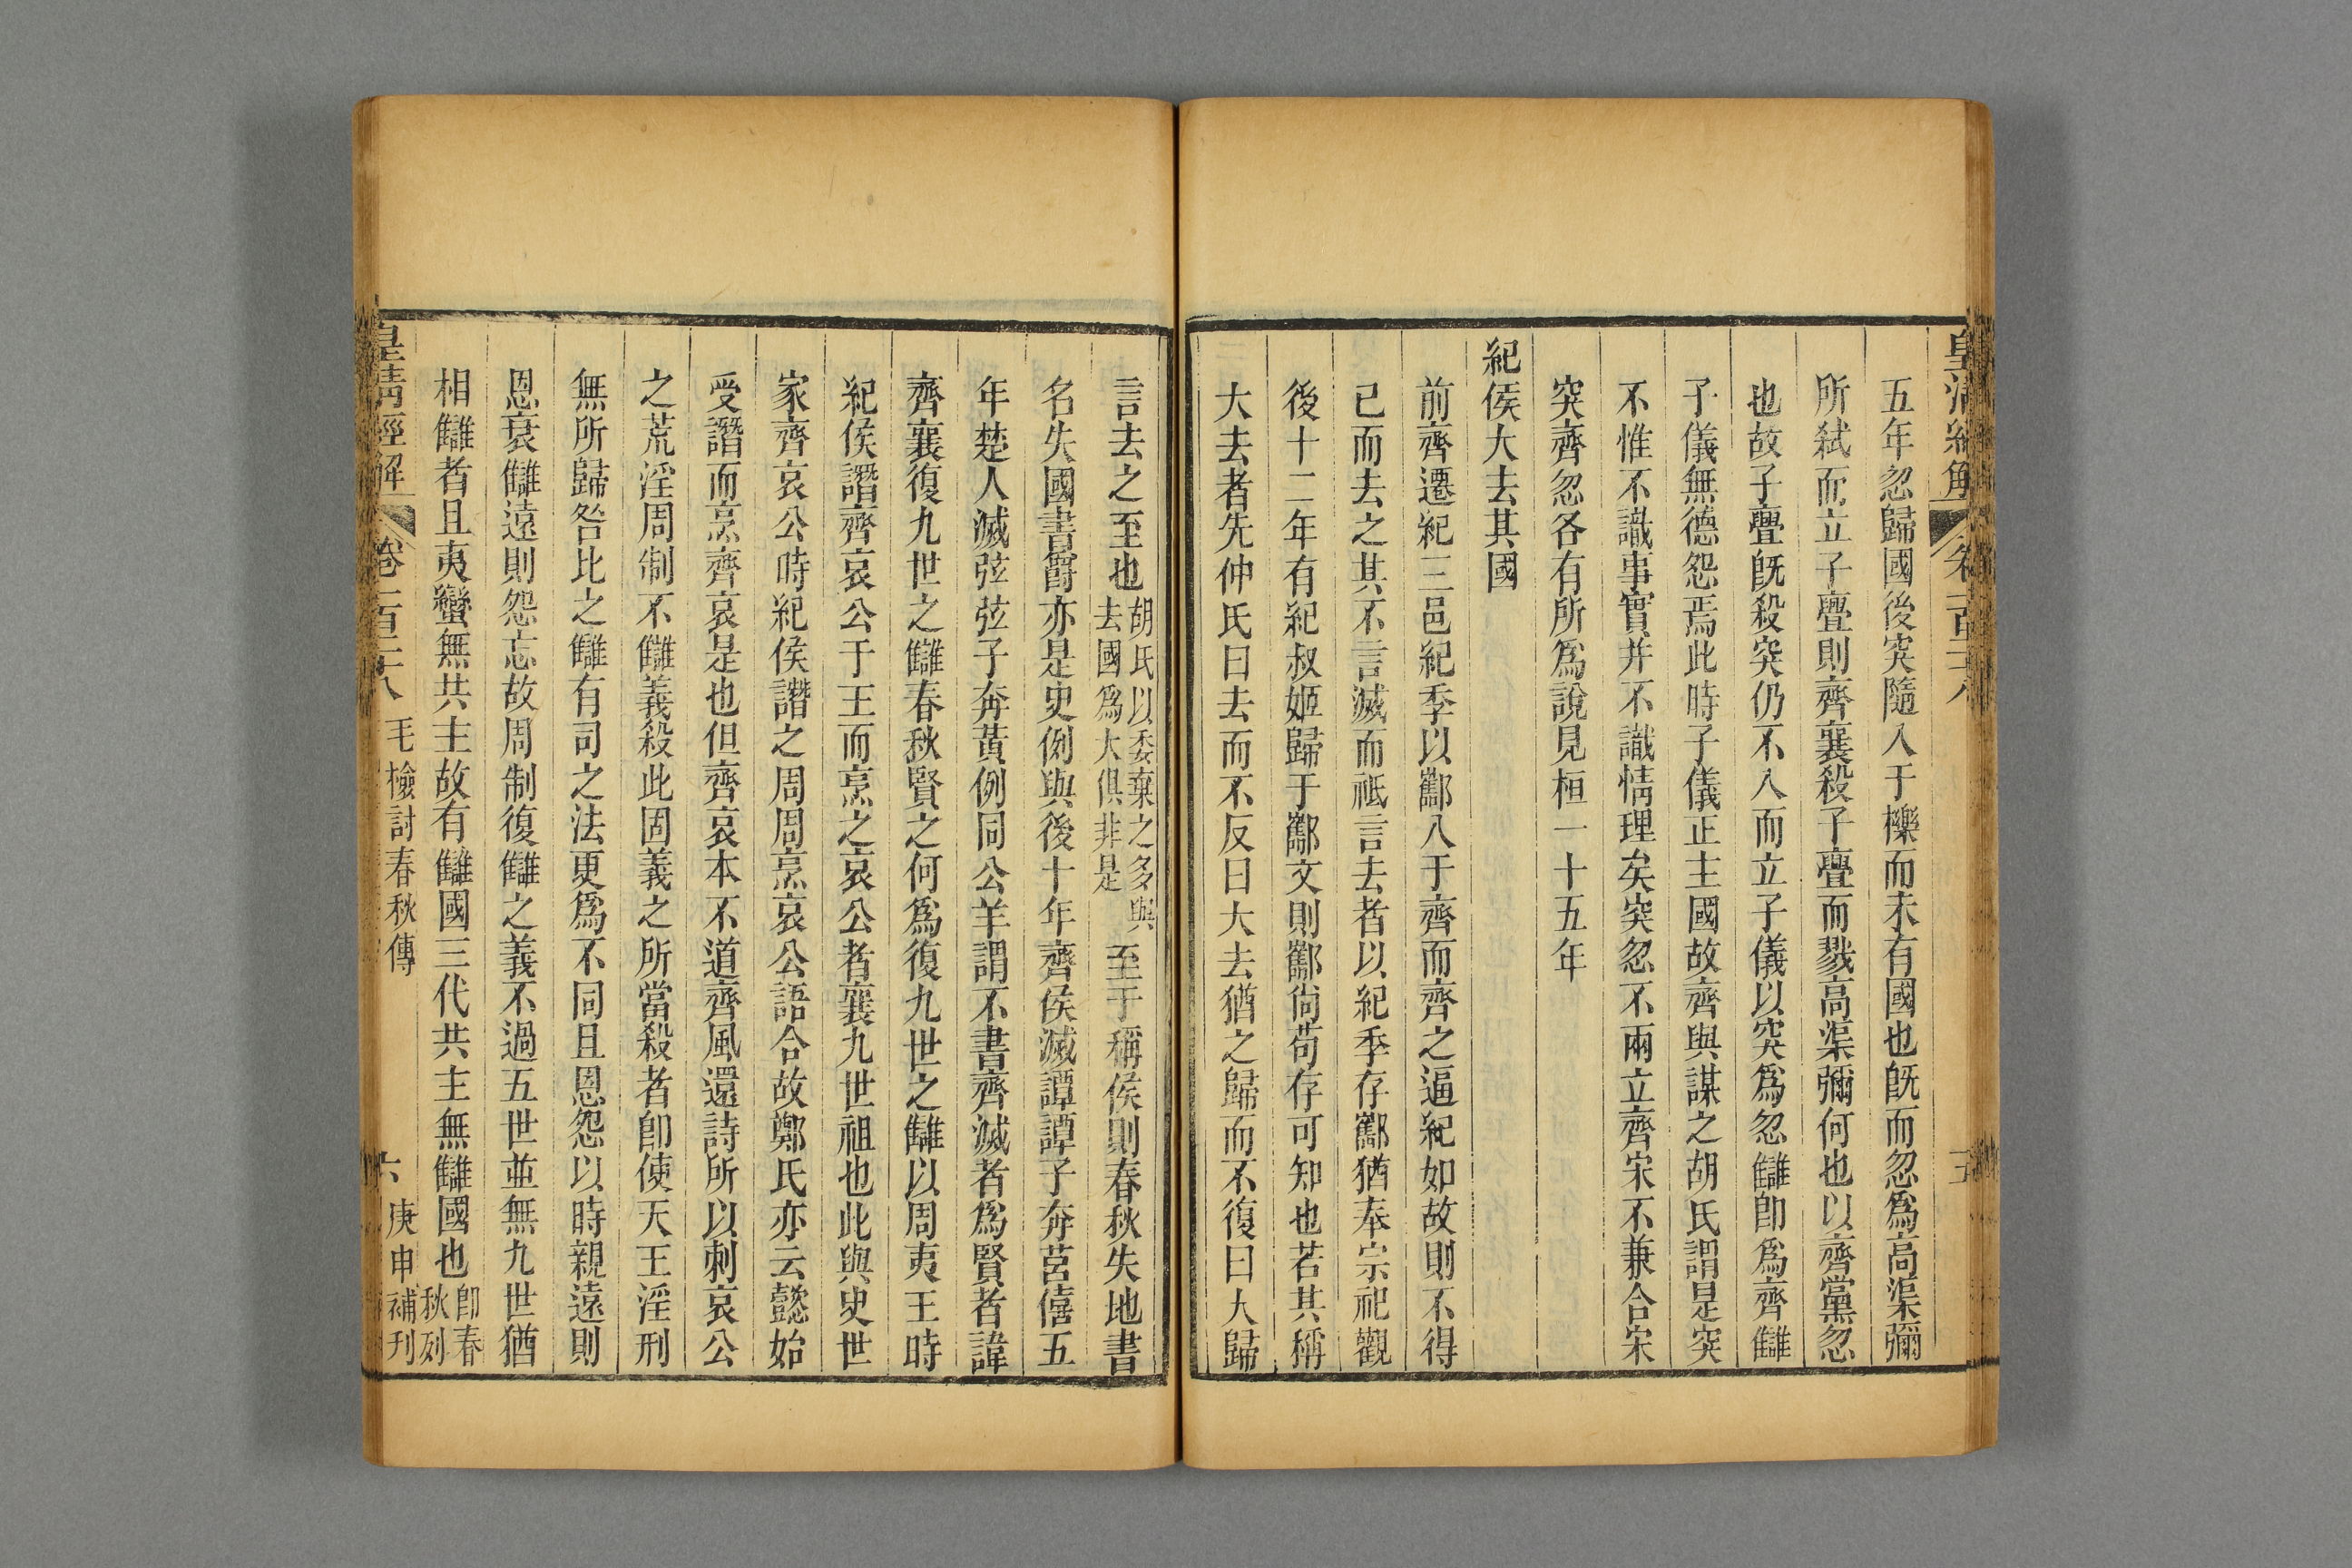 皇清經解
卷一百二十八
五
五年忽歸國後突隨入于櫟而未有國也旣而忽爲高渠彌
所弑而立子亹則齊襄殺子亹而戮高渠彌何也以齊黨忽
也故子亹旣殺突仍不入而立子儀以突爲忽讎卽爲齊讎
子儀無德怨焉此時子儀正主國故齊與謀之胡氏謂是突
不惟不識事實并不識情理矣突忽不兩立齊宋不兼合宋
突齊忽各有所爲說見桓一十五年
紀侯大去其國
前齊遷紀三邑紀季以酅入于齊而齊之逼紀如故則不得
已而去之其不言滅而祗言去者以紀季存酅猶奉宗祀觀
後十二年有紀叔姬歸于酅文則酅尙苟存可知也若其稱
大去者先仲氏曰去而不反曰大去猶之歸而不復曰大歸
言去之至也胡氏以委棄之多與去國爲大俱非是至于稱侯則春秋失地書
名失國書爵亦是史例與後十年齊侯滅譚譚子奔莒僖五
年楚人滅弦弦子奔黃例同公羊謂不書齊滅者爲賢者諱
齊襄復九世之讎春秋賢之何爲復九世之讎以周夷王時
紀侯譖齊哀公于王而烹之哀公者襄九世祖也此與史世
家齊哀公時紀侯譖之周周烹哀公語合故鄭氏亦云懿始
受譖而烹齊哀是也但齊哀本不道齊風還詩所以刺哀公
之荒淫周制不讎義殺此固義之所當殺者卽使天王淫刑
無所歸咎比之讎有司之法更爲不同且恩怨以時親遠則
恩衰讎遠則怨忘故周制復讎之義不過五世並無九世猶
相讎者且夷蠻無共主故有讎國三代共主無讎國也卽春秋列
皇清經解
卷一百二十八
毛檢討春秋傳
六
庚申補刋